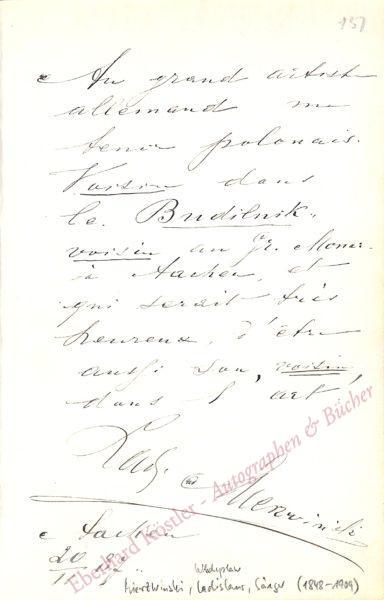 157
Au grand artiste
allemand un
tenor polonais.
Voisin dans
le Budilnik,
voisin au Gr. Monar.
à Aachen, et
qui serait très
heureux, d'être
aussi son, voisin,
dans l'art,
Lad. Mierzwinski
Aachen
20
11
Władysław
Mierzwinski, Ladislaus, Sänger (1848-1909)
Eberhard Köstler - Autographen & Bücher